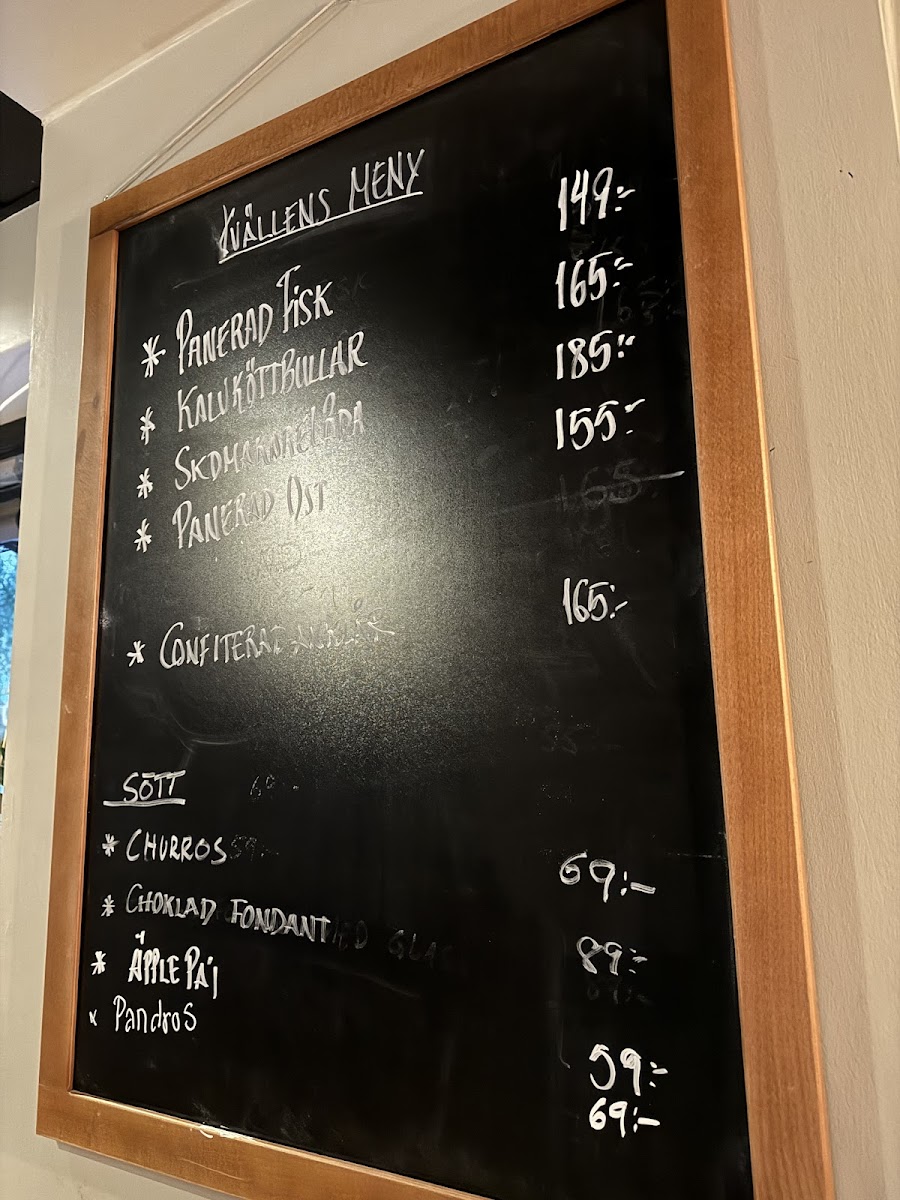 KVÄLLENS MENY
* PANERAD FISK 149:-
* KALVKÖTTBULLAR 165:-
* SKOMAKARELÅDA 185:-
* PANERAD OST 155:-
165:-
* CONFITERAT ANKLÅR 165:-
SÖTT
* CHURROS 69:-
* CHOKLAD FONDANT 89:-
* ÄPPLE PAJ 59:-
x Pandros 69:-